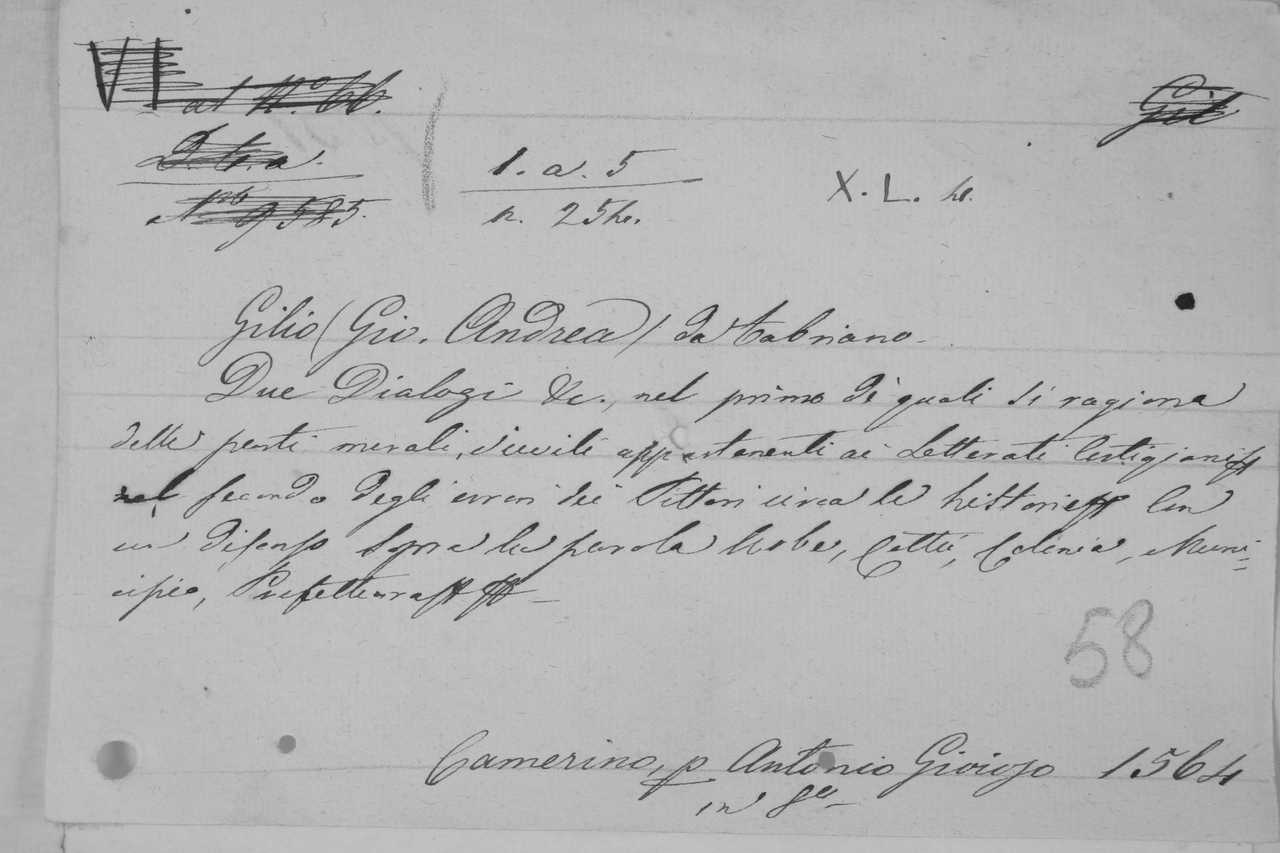 VI at N.° 66. Gil
D. t. a. 1. a. 5 X. L. h.
N.° 9585. n. 25h.
Gilio (Gio. Andrea) da Fabriano.
Due Dialogi &c., nel primo di quali si ragiona
delle parti morali, e civili appartenenti ai Letterati Cortigiani
nel secondo degli errori dei Pittori circa le historie Con
un discorso sopra la parola Urbe, Città, Colonia, Muni=
cipio, Prefettura
58
Camerino, p Antonio Gioioso 1564
in 8°